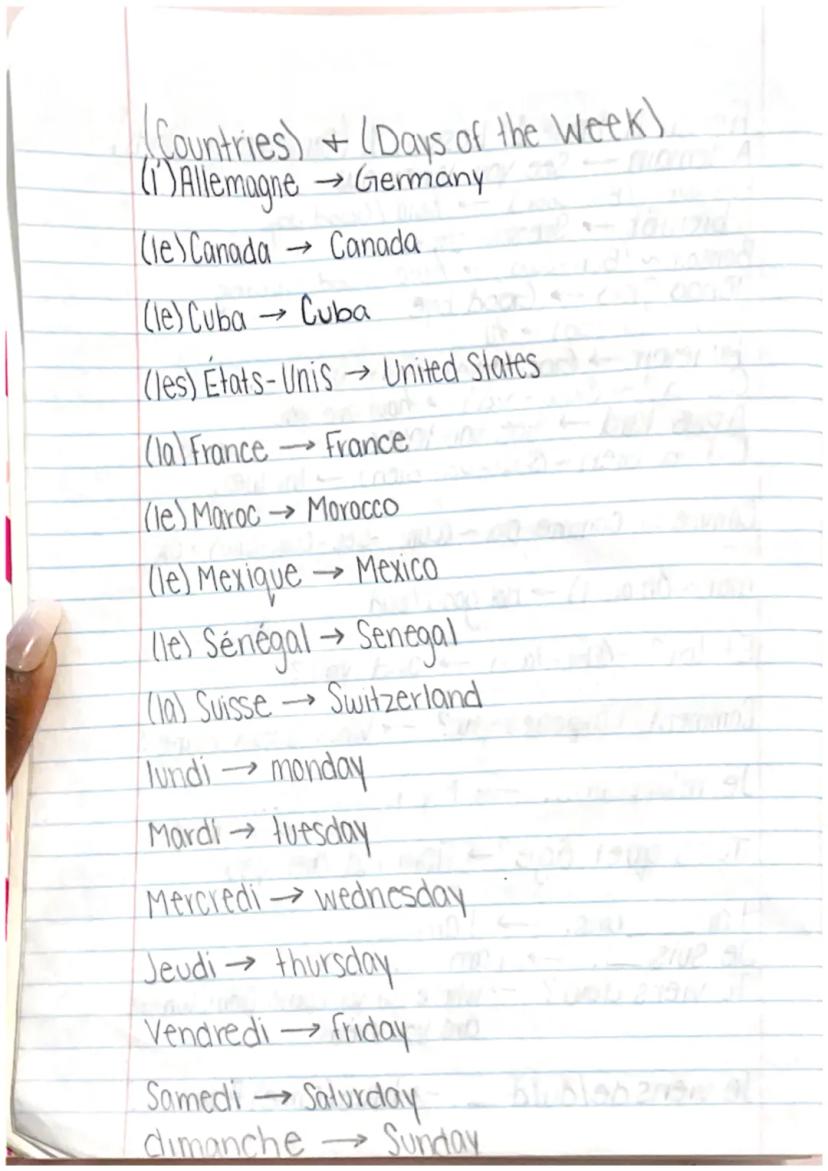 (Countries) + (Days of the week)
(l')Allemagne → Germany
(le) Canada → Canada
(le) Cuba → Cuba
(les) États-Unis → United States
(la) France → France
(le) Maroc → Morocco
(le) Mexique → Mexico
(le) Sénégal → Senegal
(la) Suisse → Switzerland
lundi → monday
Mardi → tuesday
Mercredi → wednesday
Jeudi → thursday
Vendredi → friday
Samedi → Saturday
dimanche → Sunday